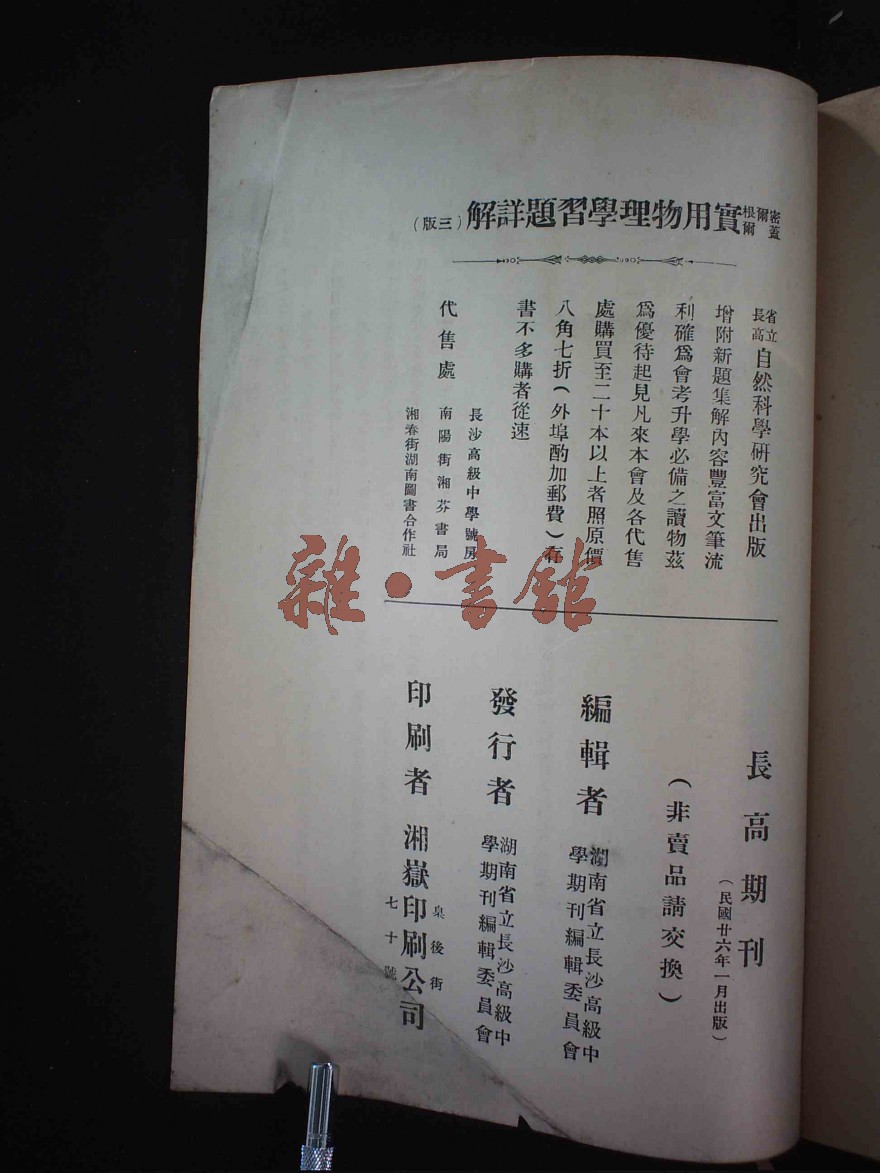 密爾根蓋爾實用物理學習題詳解(三版)
省立長高自然科學研究會出版
增附新題集解內容豐富文筆流
利確爲會考升學必備之讀物茲
爲優待起見凡來本會及各代售
處購買至二十本以上者照原價
八角七折(外埠酌加郵費)存
書不多購者從速
代售處
長沙高級中學號房
南陽街湘芬書局
湘春街湖南圖書合作社
長高期刊
(民國廿六年一月出版)
(非賣品請交換)
編輯者
湖南省立長沙高級中
學期刊編輯委員會
發行者
湖南省立長沙高級中
學期刊編輯委員會
印刷者
湘嶽印刷公司
臬後街
七十號
雜·書館